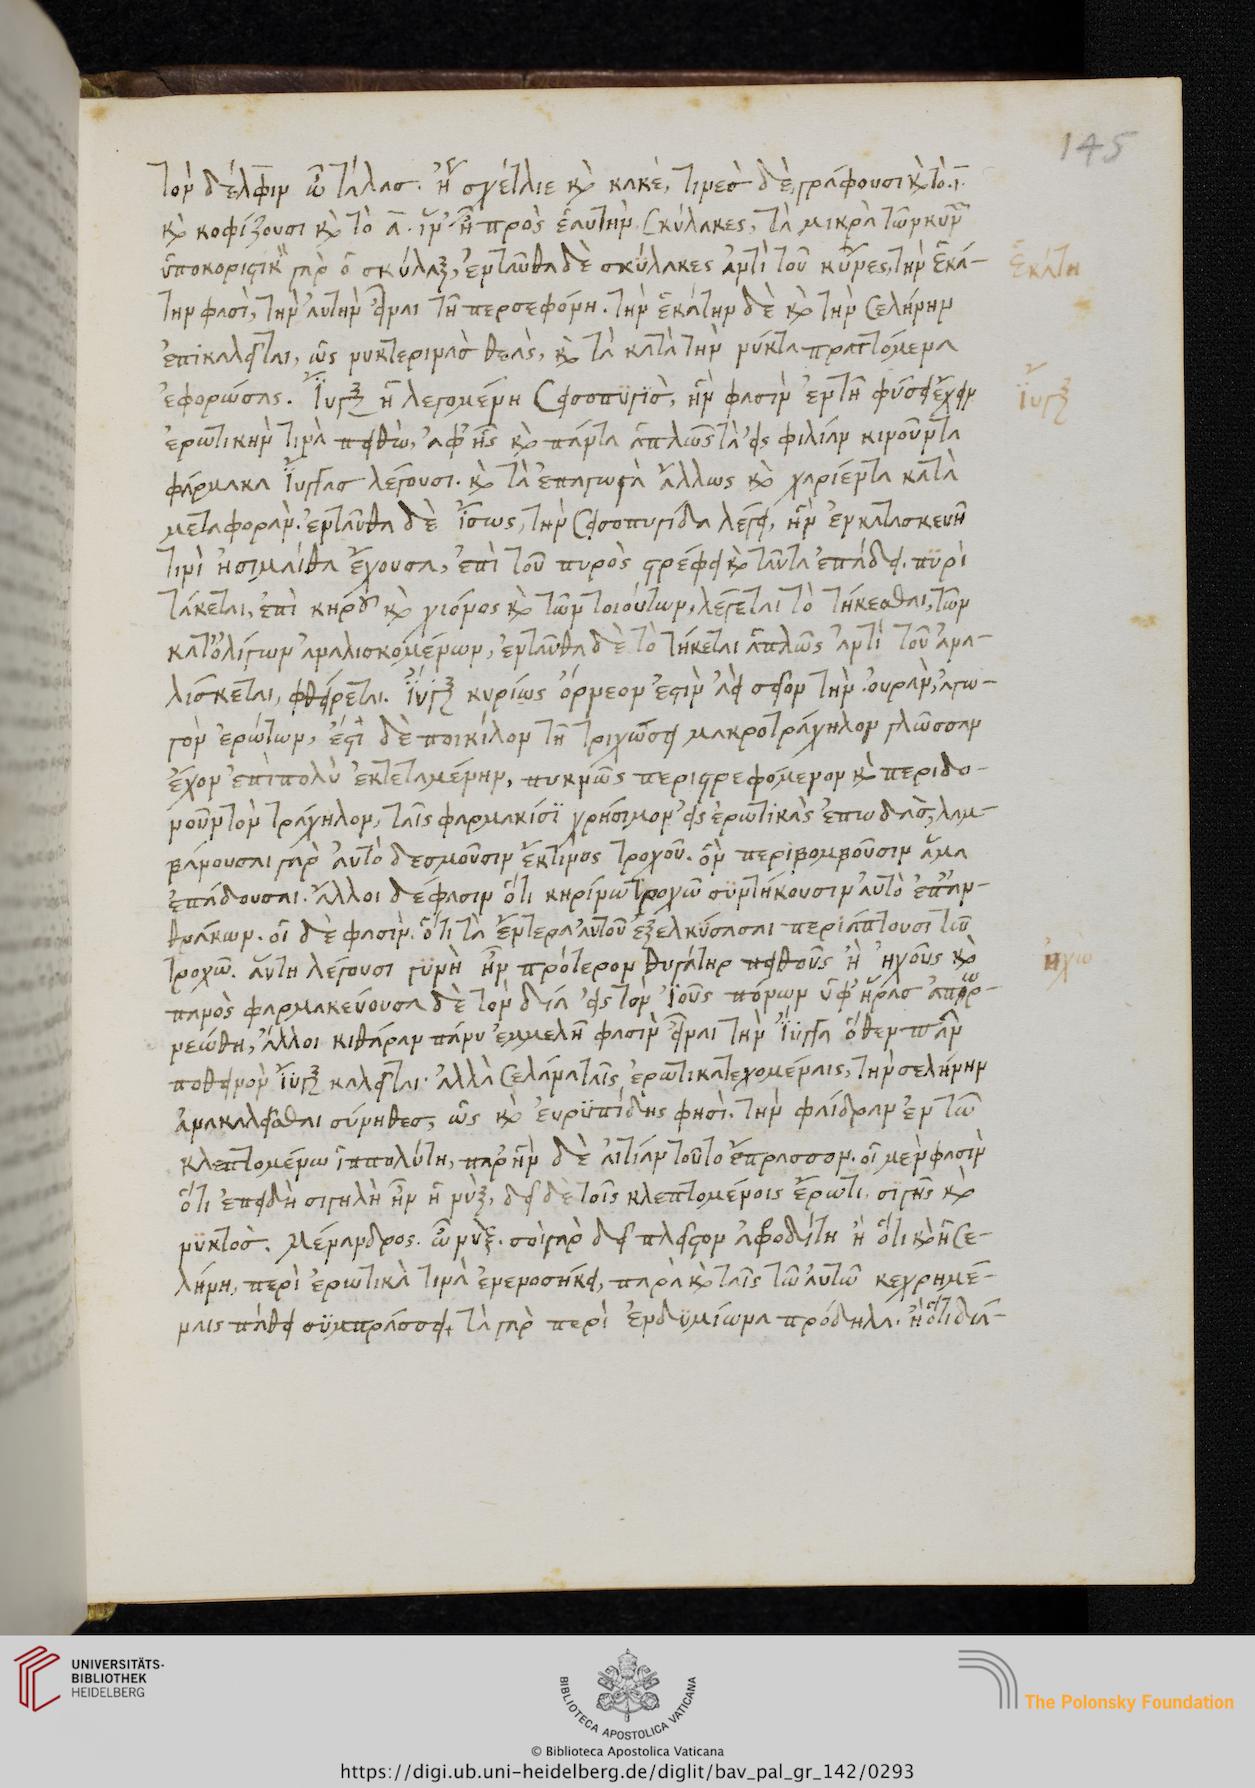 145
τὸν δέλφιν ὦ τάλασ. ἢ σχέτλιε κὶ κακὲ, τινεσ δὲ, γράφουσι κὶ τὸ ι.
κὶ κοφίζουσι κὶ τὸ α. ἵν ἦ πρὸς ἑαυτὴν. Σκύλακες, τὰ μικρὰ τῶν κυνῶν
ὑποκοριστικῶς γὰρ ὁ σκύλαξ, ἐνταῦθα δὲ σκύλακες ἀντὶ τοῦ κύνες, τὴν Ἑκά-
Ἑκάτη
την φασὶ, τὴν αὐτὴν εἶναι τῆ περσεφόνη. τὴν ἑκάτην δὲ κὶ τὴν Σελήνην
ἐπικαλεῖται, ὡς νυκτερινὰσ θεὰς, κὶ τὰ κατὰ τὴν νύκτα πραττόμενα
ἐφορώσας. Ἴϋγξ ἡ λεγομένη Σεισοπϋγὶσ, ἣν φασὶν ἐν τῆ φύσει ἔχειν
Ἴϋγξ
ἐρωτικὴν τινὰ πειθὼ, ἀφ' ἧς κὶ πάντα ἁπλῶς τὰ εἰς φιλίαν κινοῦντα
φάρμακα Ἴυγγασ λέγουσι. κὶ τὰ ἐπαγωγὰ ἄλλως κὶ χαρίεντα κατὰ
μεταφορὰν. ἐνταῦθα δὲ ἴσως, τὴν Σεισοπυγίδα λέγει, ἣν ἐν κατασκευῆ
τινὶ ἡ σιμαίθα ἔχουσα, ἐπὶ τοῦ πυρὸς στρέφει κὶ ταῦτα ἐπάδει. πϋρὶ
τάκεται, ἐπὶ κηροῦ κὶ χιόνος κὶ τῶν τοιούτων, λέγεται τὸ τήκεσθαι, τῶν
κατ' ὀλίγων ἀναλισκομένων, ἐνταῦθα δὲ τὸ τήκεται ἁπλῶς ἀντὶ τοῦ ἀνα-
λίσκεται, φθείρεται. Ἴϋγξ κυρίως ὄρνεον ἐστὶν ἀεὶ σεῖον τὴν οὐρὰν, ἀγω-
γὸν ἐρώτων, ἐστὶ δὲ ποικίλον τῆ τριχώσει μακροτράχηλον γλῶσσαν
ἔχον ἐπὶ πολὺ ἐκτεταμένην, πυκνῶς περιστρεφόμενον κὶ περιδο-
νοῦν τὸν τράχηλον, ταῖς φαρμακίσϊ χρήσιμον εἰς ἐρωτικὰς ἐπωδὰς, λαμ-
βάνουσαι γὰρ αὐτὸ δεσμοῦσιν ἔκ τινος τροχοῦ. ὃν περιβομβοῦσιν ἅμα
ἐπάδουσαι. ἄλλοι δέ φασιν ὅτι κηρίνω τροχῶ σϋντήκουσιν αὐτὸ ἐπ' ἀν-
θράκων. οἱ δὲ φασὶν. ὅτι τὰ ἔντερα αὐτοῦ ἐξελκύσασαι περιάπτουσι τῶ
τροχῶ. αὕτη λέγουσι γϋνὴ ἦν πρότερον θυγάτηρ πειθοῦς ἢ ἠχοῦς κὶ
ἠχω
πανὸς φαρμακεύουσα δὲ τὸν δία εἰς τὸν ἰοῦς πόνων ὑφ' ἥρασ ἀπωρ-
νεώθη, ἄλλοι κιθάραν πάνυ ἐμμελῆ φασὶν εἶναι τὴν Ἴϋγγα ὅθεν πᾶν
ποθεινὸν ἴϋγξ καλεῖται. ἀλλὰ Σελάνα ταῖς ἐρωτικατεχομέναις, τὴν σελήνην
ἀνακαλεῖσθαι σύνηθεσ, ὡς κὶ εὐρϋπίδης φησὶ. τὴν φαίδραν ἐν τῶ
κλεπτομένω ἱππολύτη, παρ' ἣν δὲ αἰτίαν τοῦτο ἔπρασσον. οἱ μὲν φασὶν
ὅτι ἐπειδὴ σιγηλὴ ἦν ἡ νὺξ, δεῖ δὲ τοῖς κλεπτομένοις ἔρωτι. σιγῆς κὶ
νϋκτὸσ. Μένανδρος. ὦ νὺξ. σοὶ γὰρ δεῖ πλεῖστον ἀφροδίτη ἢ ὅτι κὶ ἡ Σε-
λήνη, περὶ ἐρωτικὰ τινὰ ἐνενοσήκει, παρὰ κὶ ταῖς τῶ αὐτῶ κεχρημέ-
ναις πάθει σϋμπράσσει, τὰ γὰρ περὶ ἐνδϋμίωνα πρόδηλα. ἢ ὅτι διὰ-
UNIVERSITÄTS-
BIBLIOTHEK
HEIDELBERG
BIBLIOTECA APOSTOLICA VATICANA
The Polonsky Foundation
© Biblioteca Apostolica Vaticana
https://digi.ub.uni-heidelberg.de/diglit/bav_pal_gr_142/0293